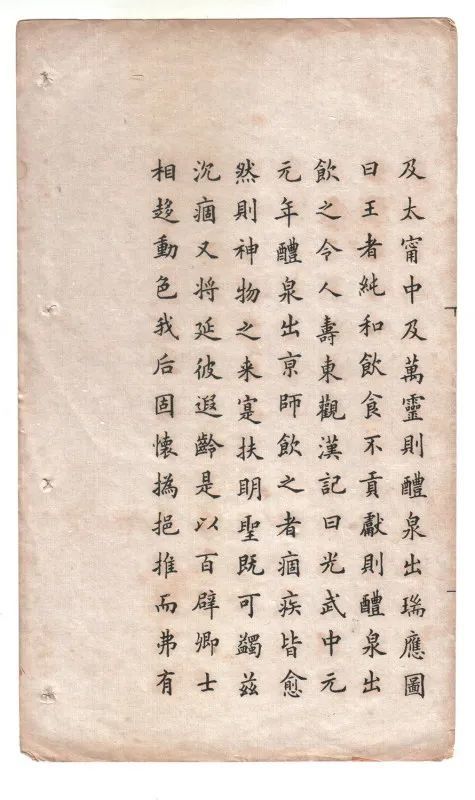 及太甯中及萬靈則醴泉出瑞應圖
曰王者純和飲食不貢獻則醴泉出
飲之令人壽東觀漢記曰光武中元
元年醴泉出京師飲之者痼疾皆愈
然則神物之来寔扶明聖既可蠲茲
沉痼又将延彼遐齡是以百辟卿士
相趍動色我后固懷撝挹推而弗有